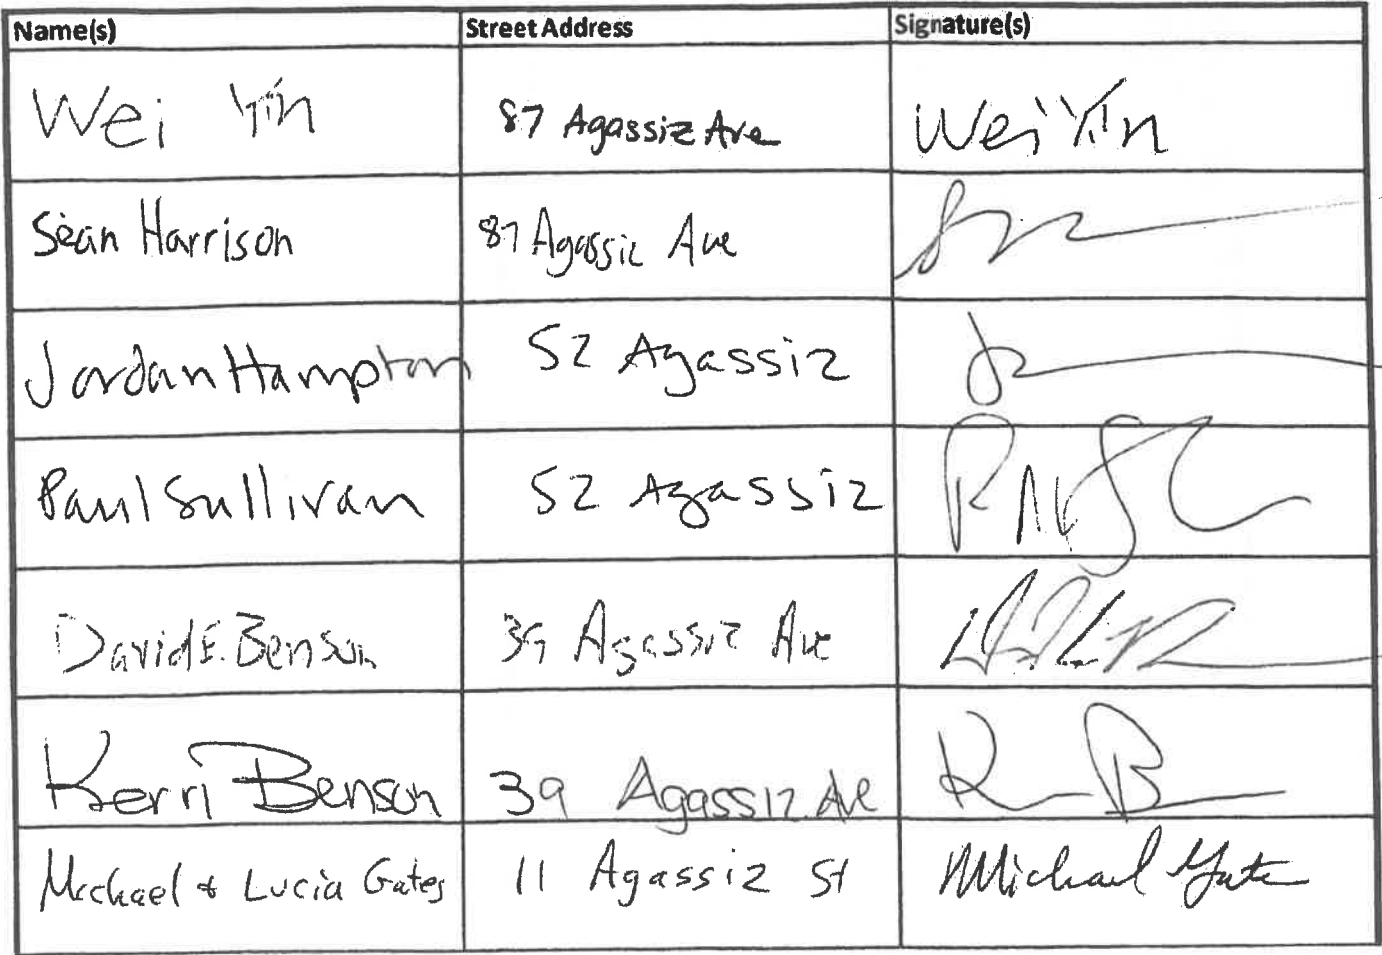 Name(s) Street Address Signature(s)
Wei Yin 87 Agassiz Ave Wei Yin
Sean Harrison 87 Agassiz Ave
Jordan Hampton 52 Agassiz
Paul Sullivan 52 Agassiz
David E. Benson 39 Agassiz Ave
Kerri Benson 39 Agassiz Ave K B
Michael & Lucia Gates 11 Agassiz St Michael Gates